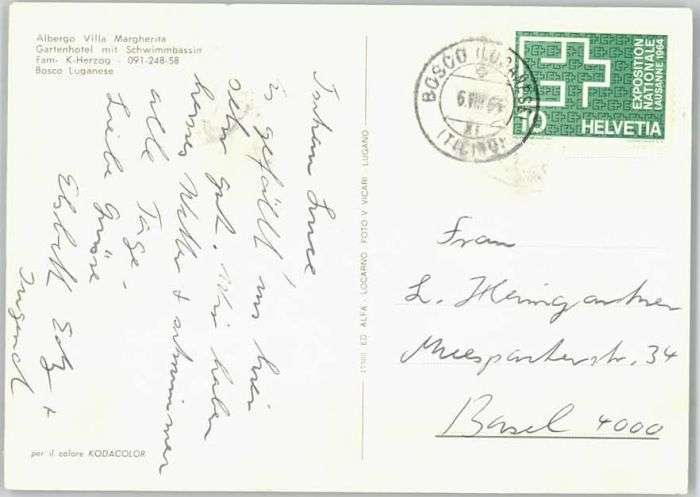 Albergo Villa Margherita
Gartenhotel mit Schwimmbassin
Fam- K-Herzog - 091-248-58
Bosco Luganese
es gefällt uns hier
sehr gut. Wir haben
Wetter +
alle Tage.
Liebe Grüsse
Elsbeth +
Jugend
per il colore KODACOLOR
ED ALFA - LOCARNO FOTO V VICARI LUGANO
BOSCO (LUGANESE)
6.VIII.64
XI
(TICINO)
EXPOSITION
NATIONALE
LAUSANNE 1964
10 HELVETIA
Frau
L. Heimgartner
34
Basel 4000